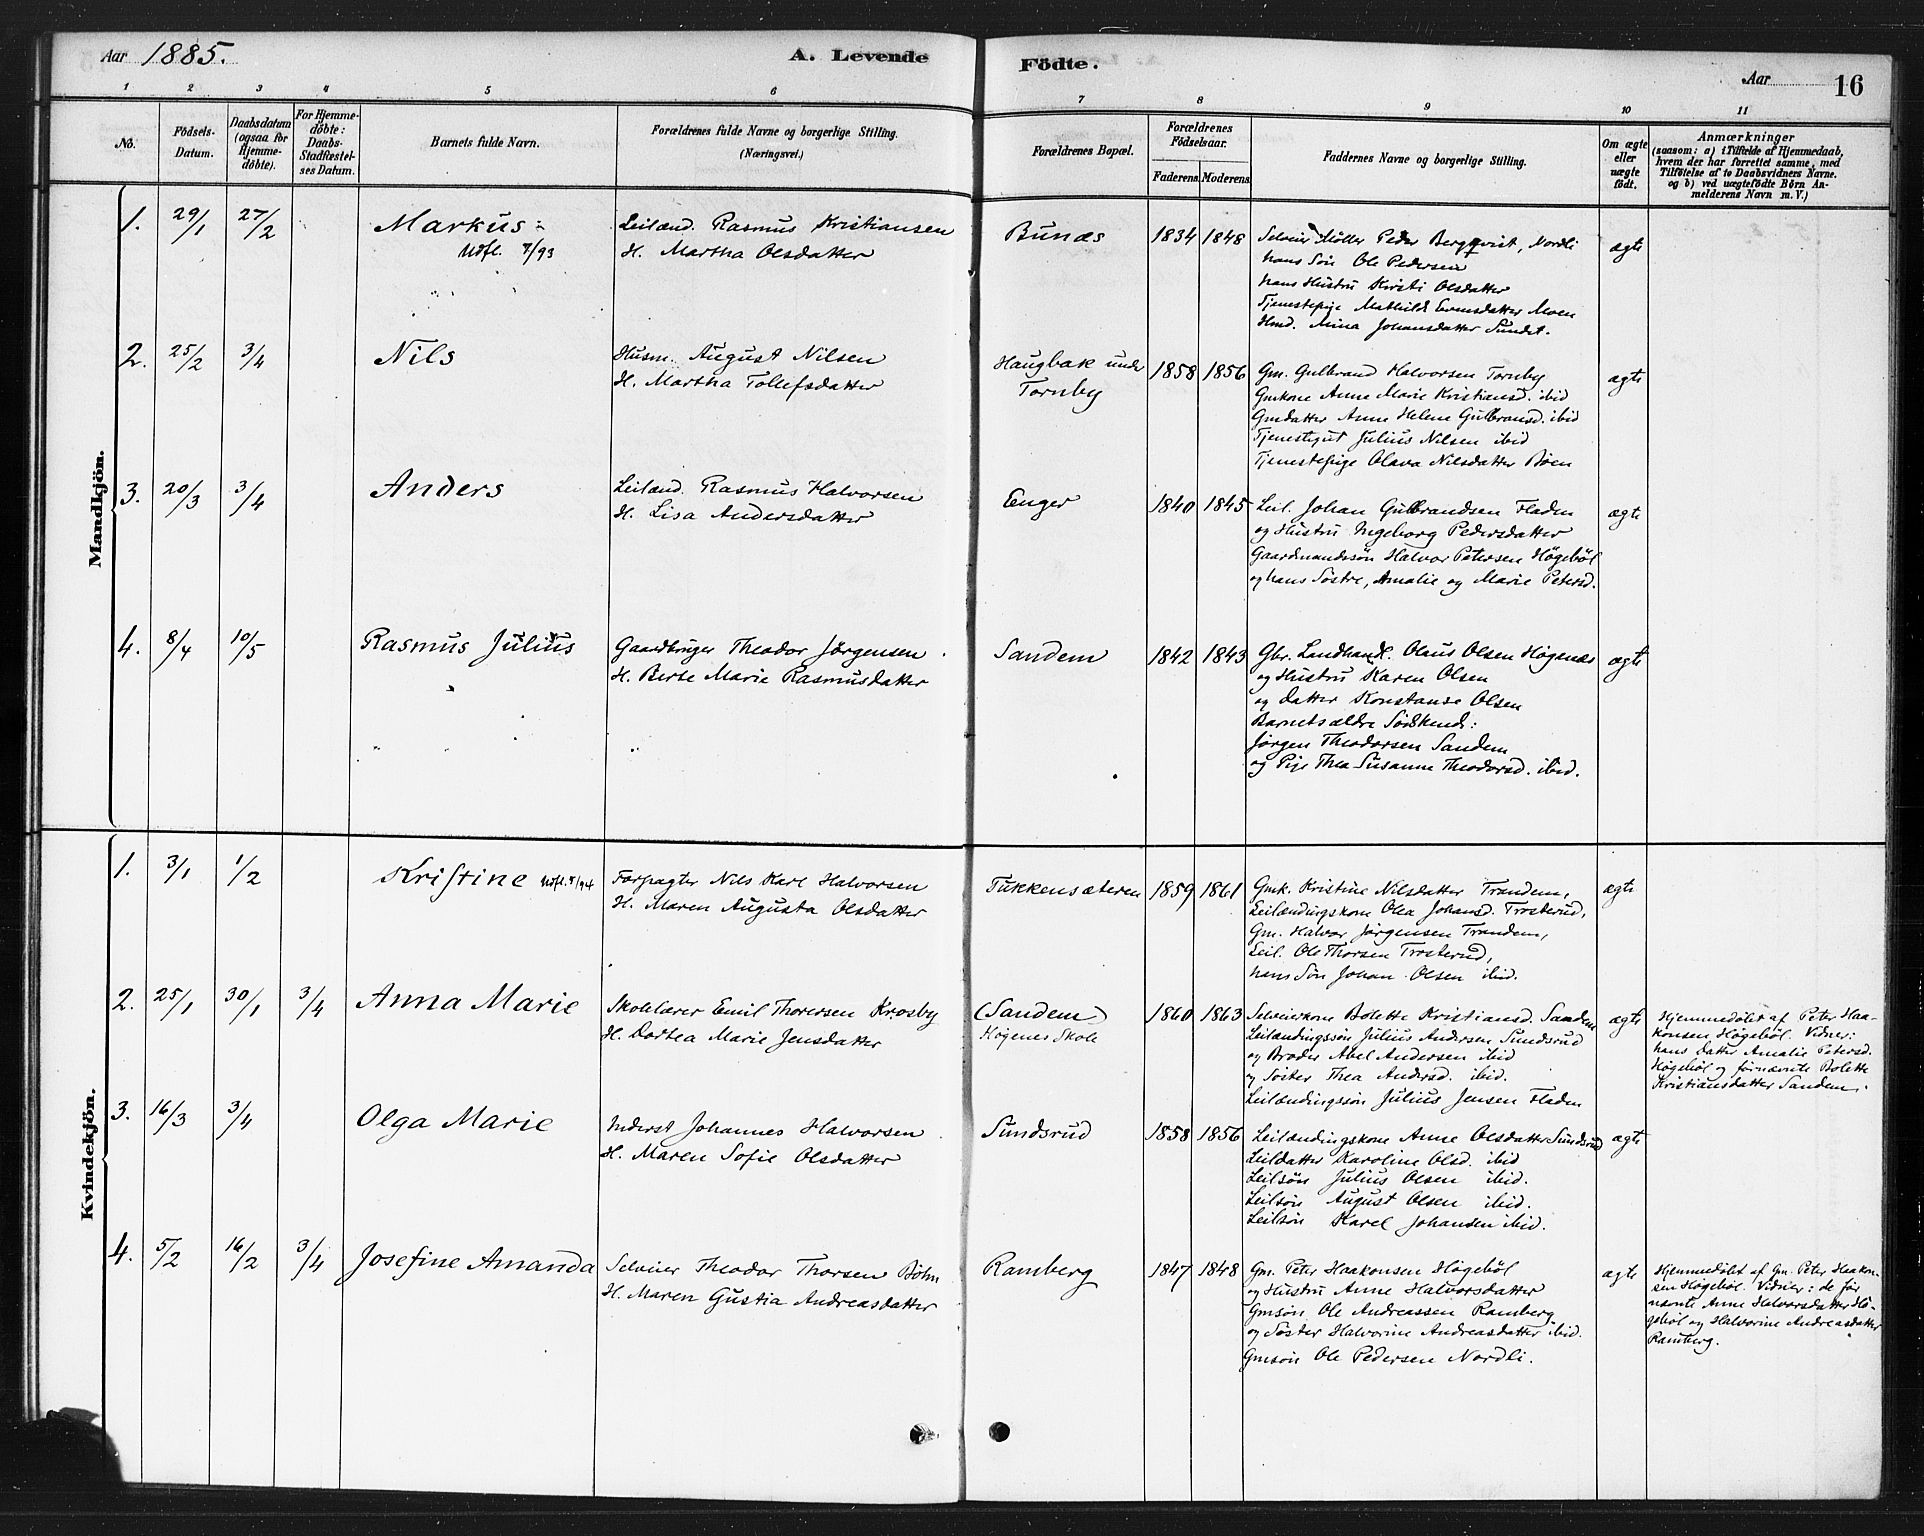 Aar 1885.
A. Levende
Födte.
Aar
16
1 2 3 4 5 6
7 8 9 10 11
No.
Födsels-
Datum.
Daabsdatum
(ogsaa for
Hjemme-
döbte).
For Hjemme-
döbte:
Daabs-
Stadfæstel-
ses Datum.
Barnets fulde Navn.
Forældrenes fulde Navne og borgerlige Stilling.
(Næringsvei.)
Forældrenes Bopæl.
Forældrenes
Födselsaar.
Faderens.
Moderens.
Faddernes Navne og borgerlige Stilling.
Om ægte
eller
uægte
födt.
Anmærkninger
(saasom: a) i Tilfælde af Hjemmedaab,
hvem der har forrettet samme, med
Tilföielse af to Daabsvidners Navne.
og b) ved uægtefödte Börn An-
melderens Navn m. V.)
Mandkjön.
1. 29/1 27/2
Markus
Udfl. 7/93
Leilænd. Rasmus Kristiansen
H. Martha Olsdatter
Bunæs
1834 1848
Selveier Møller Peder Bergqvist, Nordli
hans Søn Ole Pedersen
hans Hustru Kirsti Olsdatter
Tjenestepige Mathilde Evensdatter Moen
Hmd. Mina Johansdatter Sundet.
ægte
2. 25/2 3/4
Nils
Husm. August Nilsen
H. Martha Tollefsdatter
Haugbak under
Tornby
1858 1856
Gm. Gulbrand Halvorsen Tornby
Gmkone Anne Marie Kristiansd. ibid
Gmdatter Anne Helene Gulbransd. ibid
Tjenestegut Julius Nilsen ibid
Tjenestepige Olava Nilsdatter Bøen
ægte
3. 20/3 3/4
Anders
Leilænd. Rasmus Halvorsen
H. Lisa Andersdatter
Enger
1840 1845
Leil. Johan Gulbrandsen Fladen
og Hustru Ingeborg Pedersdatter
Gaardmandssøn Halvor Petersen Høgebøl
og hans Søstre, Amalie og Marie Petersd.
ægte
4. 8/4 10/5
Rasmus Julius
Gaardbruger Theodor Jørgensen
H. Berte Marie Rasmusdatter
Sandem
1842 1843
Gbr. Landhandl. Olaus Olsen Høgenæs
og Hustru Karen Olsen
og Datter Konstanse Olsen
Barnets ældre Sødskend:
Jørgen Theodorsen Sandem
og Pige Thea Susanne Theodorsd. ibid.
ægte
Kvindekjön.
1. 3/1 1/2
Kristine Udfl. 7/94
Forpagter Nils Karl Halvorsen
H. Maren Augusta Olsdatter
Tukkensæteren
1859 1861
Gmk. Kristine Nilsdatter Trandem,
Leilændingskone Olea Johansd. Trosterud,
Gm. Halvor Jørgensen Trandem,
Leil. Ole Thorsen Trosterud,
hans Søn Johan Olsen ibid.
ægte
2. 25/1 30/1 3/4
Anna Marie
Skolelærer Emil Thoresen Krosby
H. Dortea Marie Jensdatter
(Sandem)
Høgenes Skole
1860 1863
Selveierkone Bolette Kristiansd. Sandem
Leilændingssøn Julius Andersen Sundsrud
og Broder Abel Andersen ibid
og Søster Thea Andersd. ibid.
Leilændingssøn Julius Jensen Fladen
ægte
Hjemmedøbt af Peter Haa-
konsen Høgebøl. Vidner:
hans Datter Amalie Petersd.
Høgebøl og førnævnte Bolette
Kristiansdatter Sandem.
3. 16/3 3/4
Olga Marie
Inderst Johannes Halvorsen
H. Maren Sofie Olsdatter
Sundsrud
1858 1856
Leilændingskone Anne Olsdatter Sundsrud
Leildatter Karoline Olsd. ibid
Leilsøn Julius Olsen ibid.
Leilsøn August Olsen ibid.
Leilsøn Karel Johansen ibid.
ægte
4. 5/2 16/2 3/4
Josefine Amanda
Selveier Theodor Thorsen Bøhn
H. Maren Gustia Andreasdatter
Ramberg
1847 1848
Gm. Peter Haakonsen Høgebøl
og Hustru Anne Halvorsdatter
Gmsøn Ole Andreassen Ramberg
og Søster Halvorine Andreasdatter ibid.
Gmsøn Ole Pedersen Nordli.
ægte
Hjemmedøbt af Gm. Peter Haakon-
sen Høgebøl. Vidner: de før
nævnte Anne Halvorsdatter Hø-
gebøl og Halvorine Andreasdatter
Ramberg.